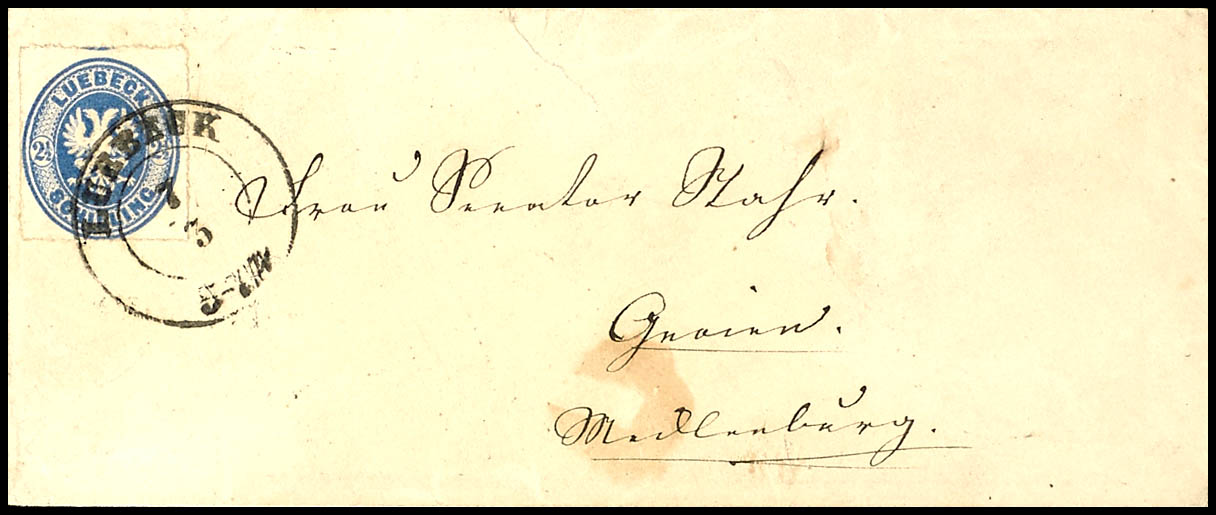 LUEBECK
2½ 2½
SCHILLING
LUEBECK
7
3
5-7 N
Frau Senator Stahr.
Gnoien.
Mecklenburg.